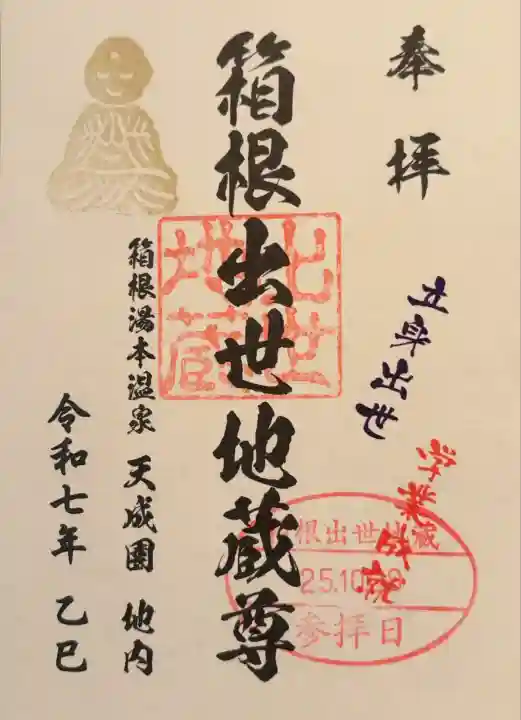 奉拝
立身出世
学業成就
箱根出世地蔵尊
出世
地蔵
箱根出世地蔵
参拝日
箱根湯本温泉 天成園 地内
令和七年 乙巳